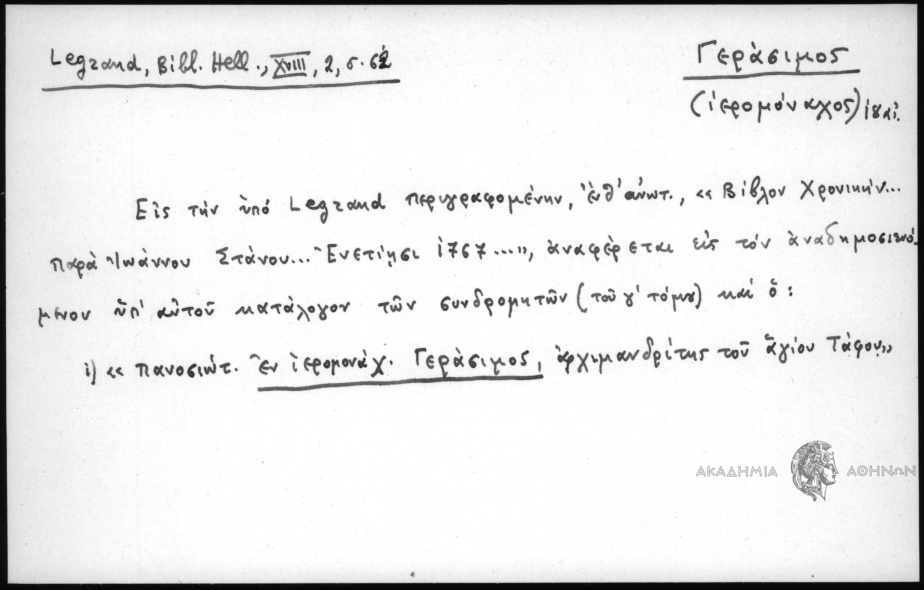 Legrand, Bibl. Hell., XVIII, 2, σ. 62
Γεράσιμος
(ἱερομόναχος)
Εἰς τήν ὑπό Legrand περιγραφομένην, ἐνθ' ἀνωτ., «Βίβλον Χρονικήν...
παρά Ἰωάννου Στάνου... Ἐνετίῃσι 1767...», ἀναφέρεται εἰς τόν ἀναδημοσιευό-
μενον ὑπ' αὐτοῦ κατάλογον τῶν συνδρομητῶν (τοῦ γ' τόμου) καί ὁ:
1) «Πανοσιώτ. ἐν ἱερομονάχ. Γεράσιμος, ἀρχιμανδρίτης τοῦ ἁγίου Τάφου»
ΑΚΑΔΗΜΙΑ ΑΘΗΝΩΝ